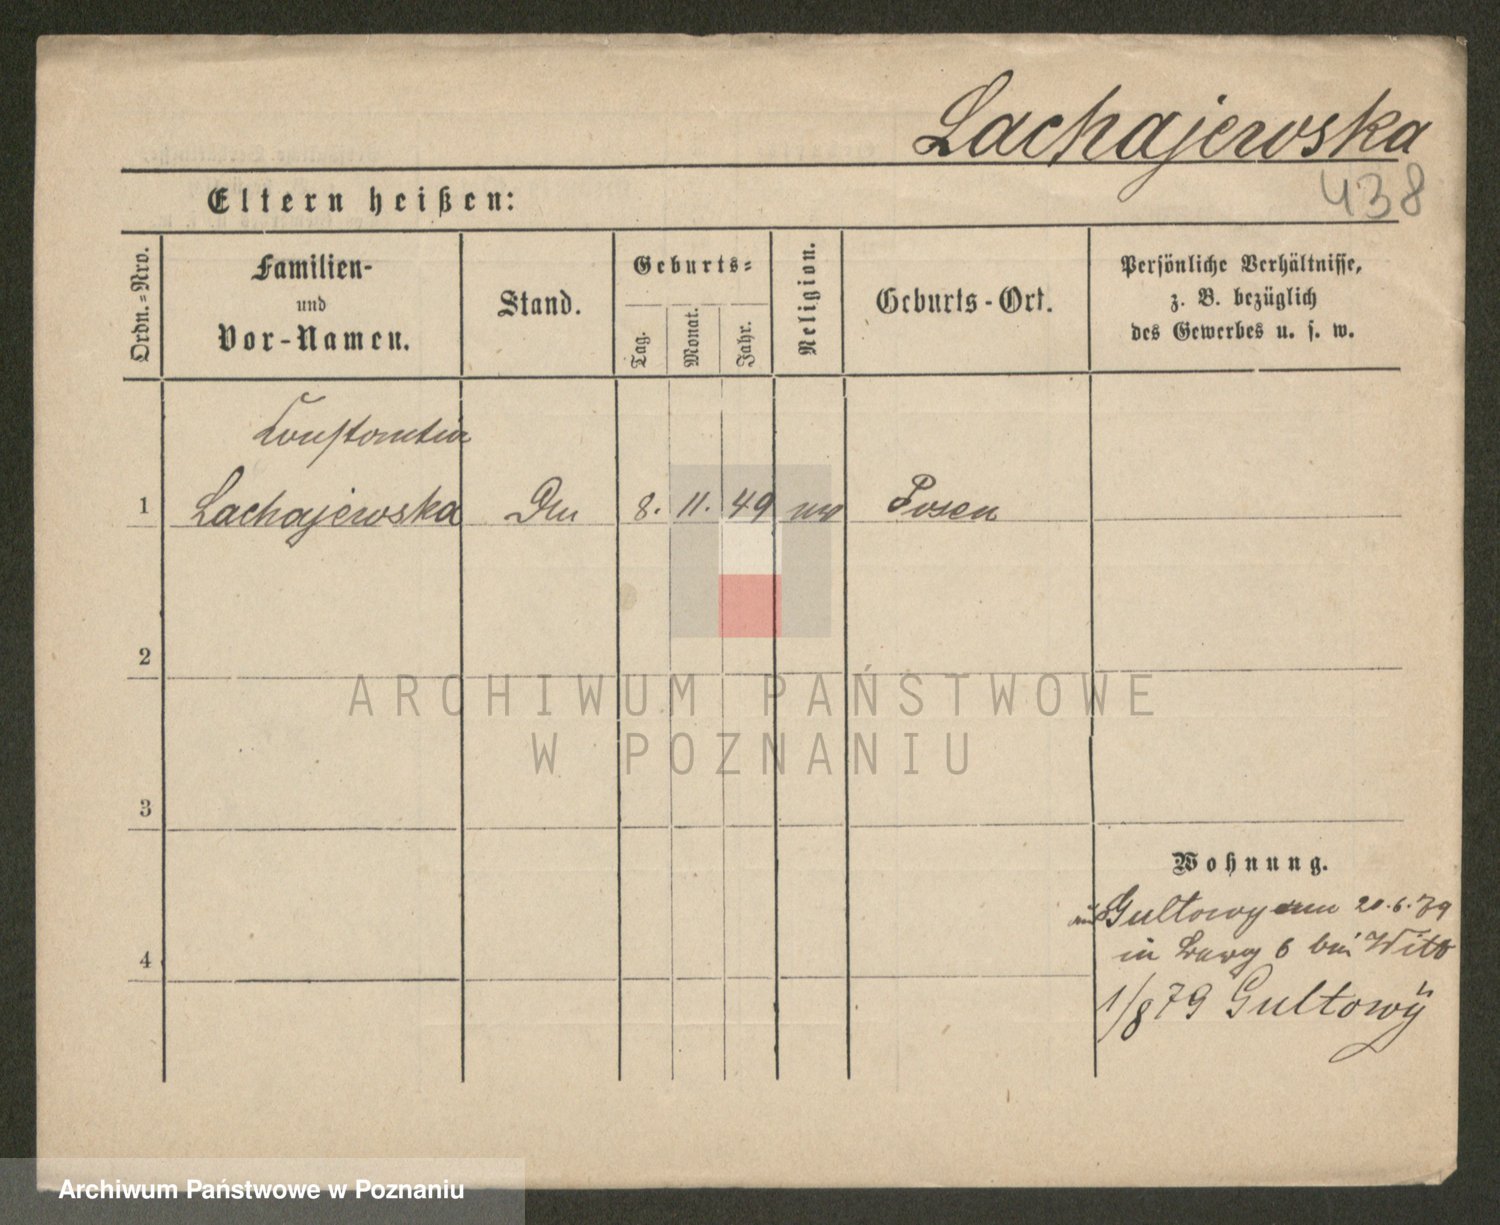 Lachajewska
438
Eltern heißen:
Ordn.=Nro.
Familien-
und
Vor-Namen.
Stand.
Geburts=
Tag.
Monat.
Jahr.
Religion.
Geburts-Ort.
Persönliche Verhältnisse,
z. B. bezüglich
des Gewerbes u. s. w.
Constantia
1 Lachajewska 8. 11. 49 Posen
2
ARCHIWUM PAŃSTWOWE
W POZNANIU
3
Wohnung.
Gultowy 20.6.79
4
in 6 bei Witt
1/8 79 Gultowÿ
Archiwum Państwowe w Poznaniu